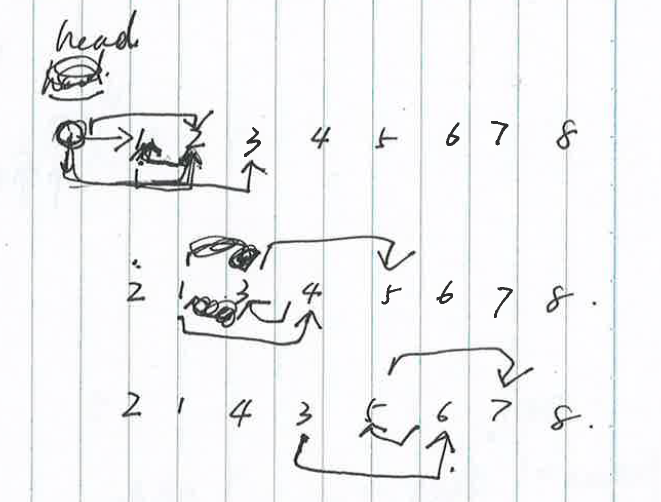 head
1 2 3 4 5 6 7 8
2 1 3 4 5 6 7 8.
2 1 4 3 5 6 7 8.